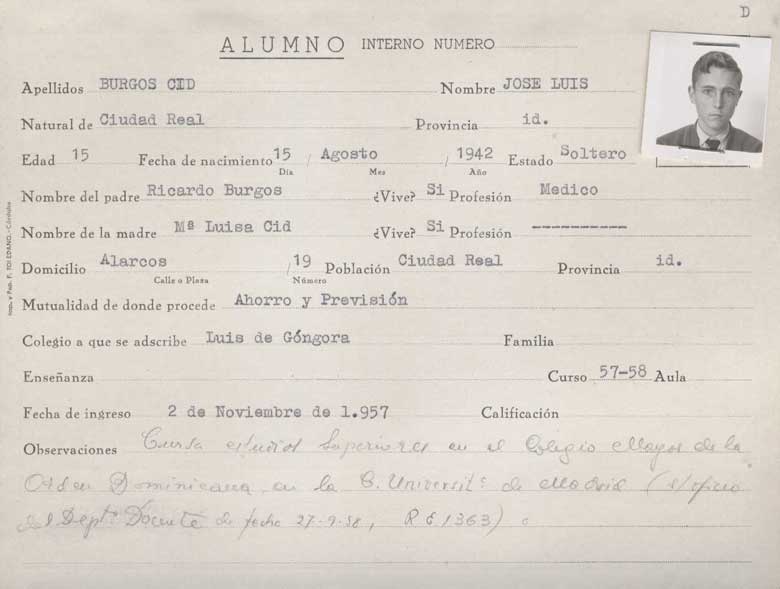 D
ALUMNO INTERNO NUMERO
Apellidos BURGOS CID Nombre JOSE LUIS
Natural de Ciudad Real Provincia id.
Edad 15 Fecha de nacimiento 15 / Agosto / 1942 Estado Soltero
Día Mes Año
Nombre del padre Ricardo Burgos ¿Vive? Si Profesión Medico
Nombre de la madre Mª Luisa Cid ¿Vive? Si Profesión -----
Domicilio Alarcos / 19 Población Ciudad Real Provincia id.
Calle o Plaza Número
Mutualidad de donde procede Ahorro y Previsión
Colegio a que se adscribe Luis de Góngora Familia
Enseñanza Curso 57-58 Aula
Fecha de ingreso 2 de Noviembre de 1.957 Calificación
Observaciones Cursa estudios Superiores en el Colegio Mayor de la
Orden Dominicana en la C. Universitª de Madrid (s/oficio
del Deptº Docente de fecha 27-9-58, RE 1363)